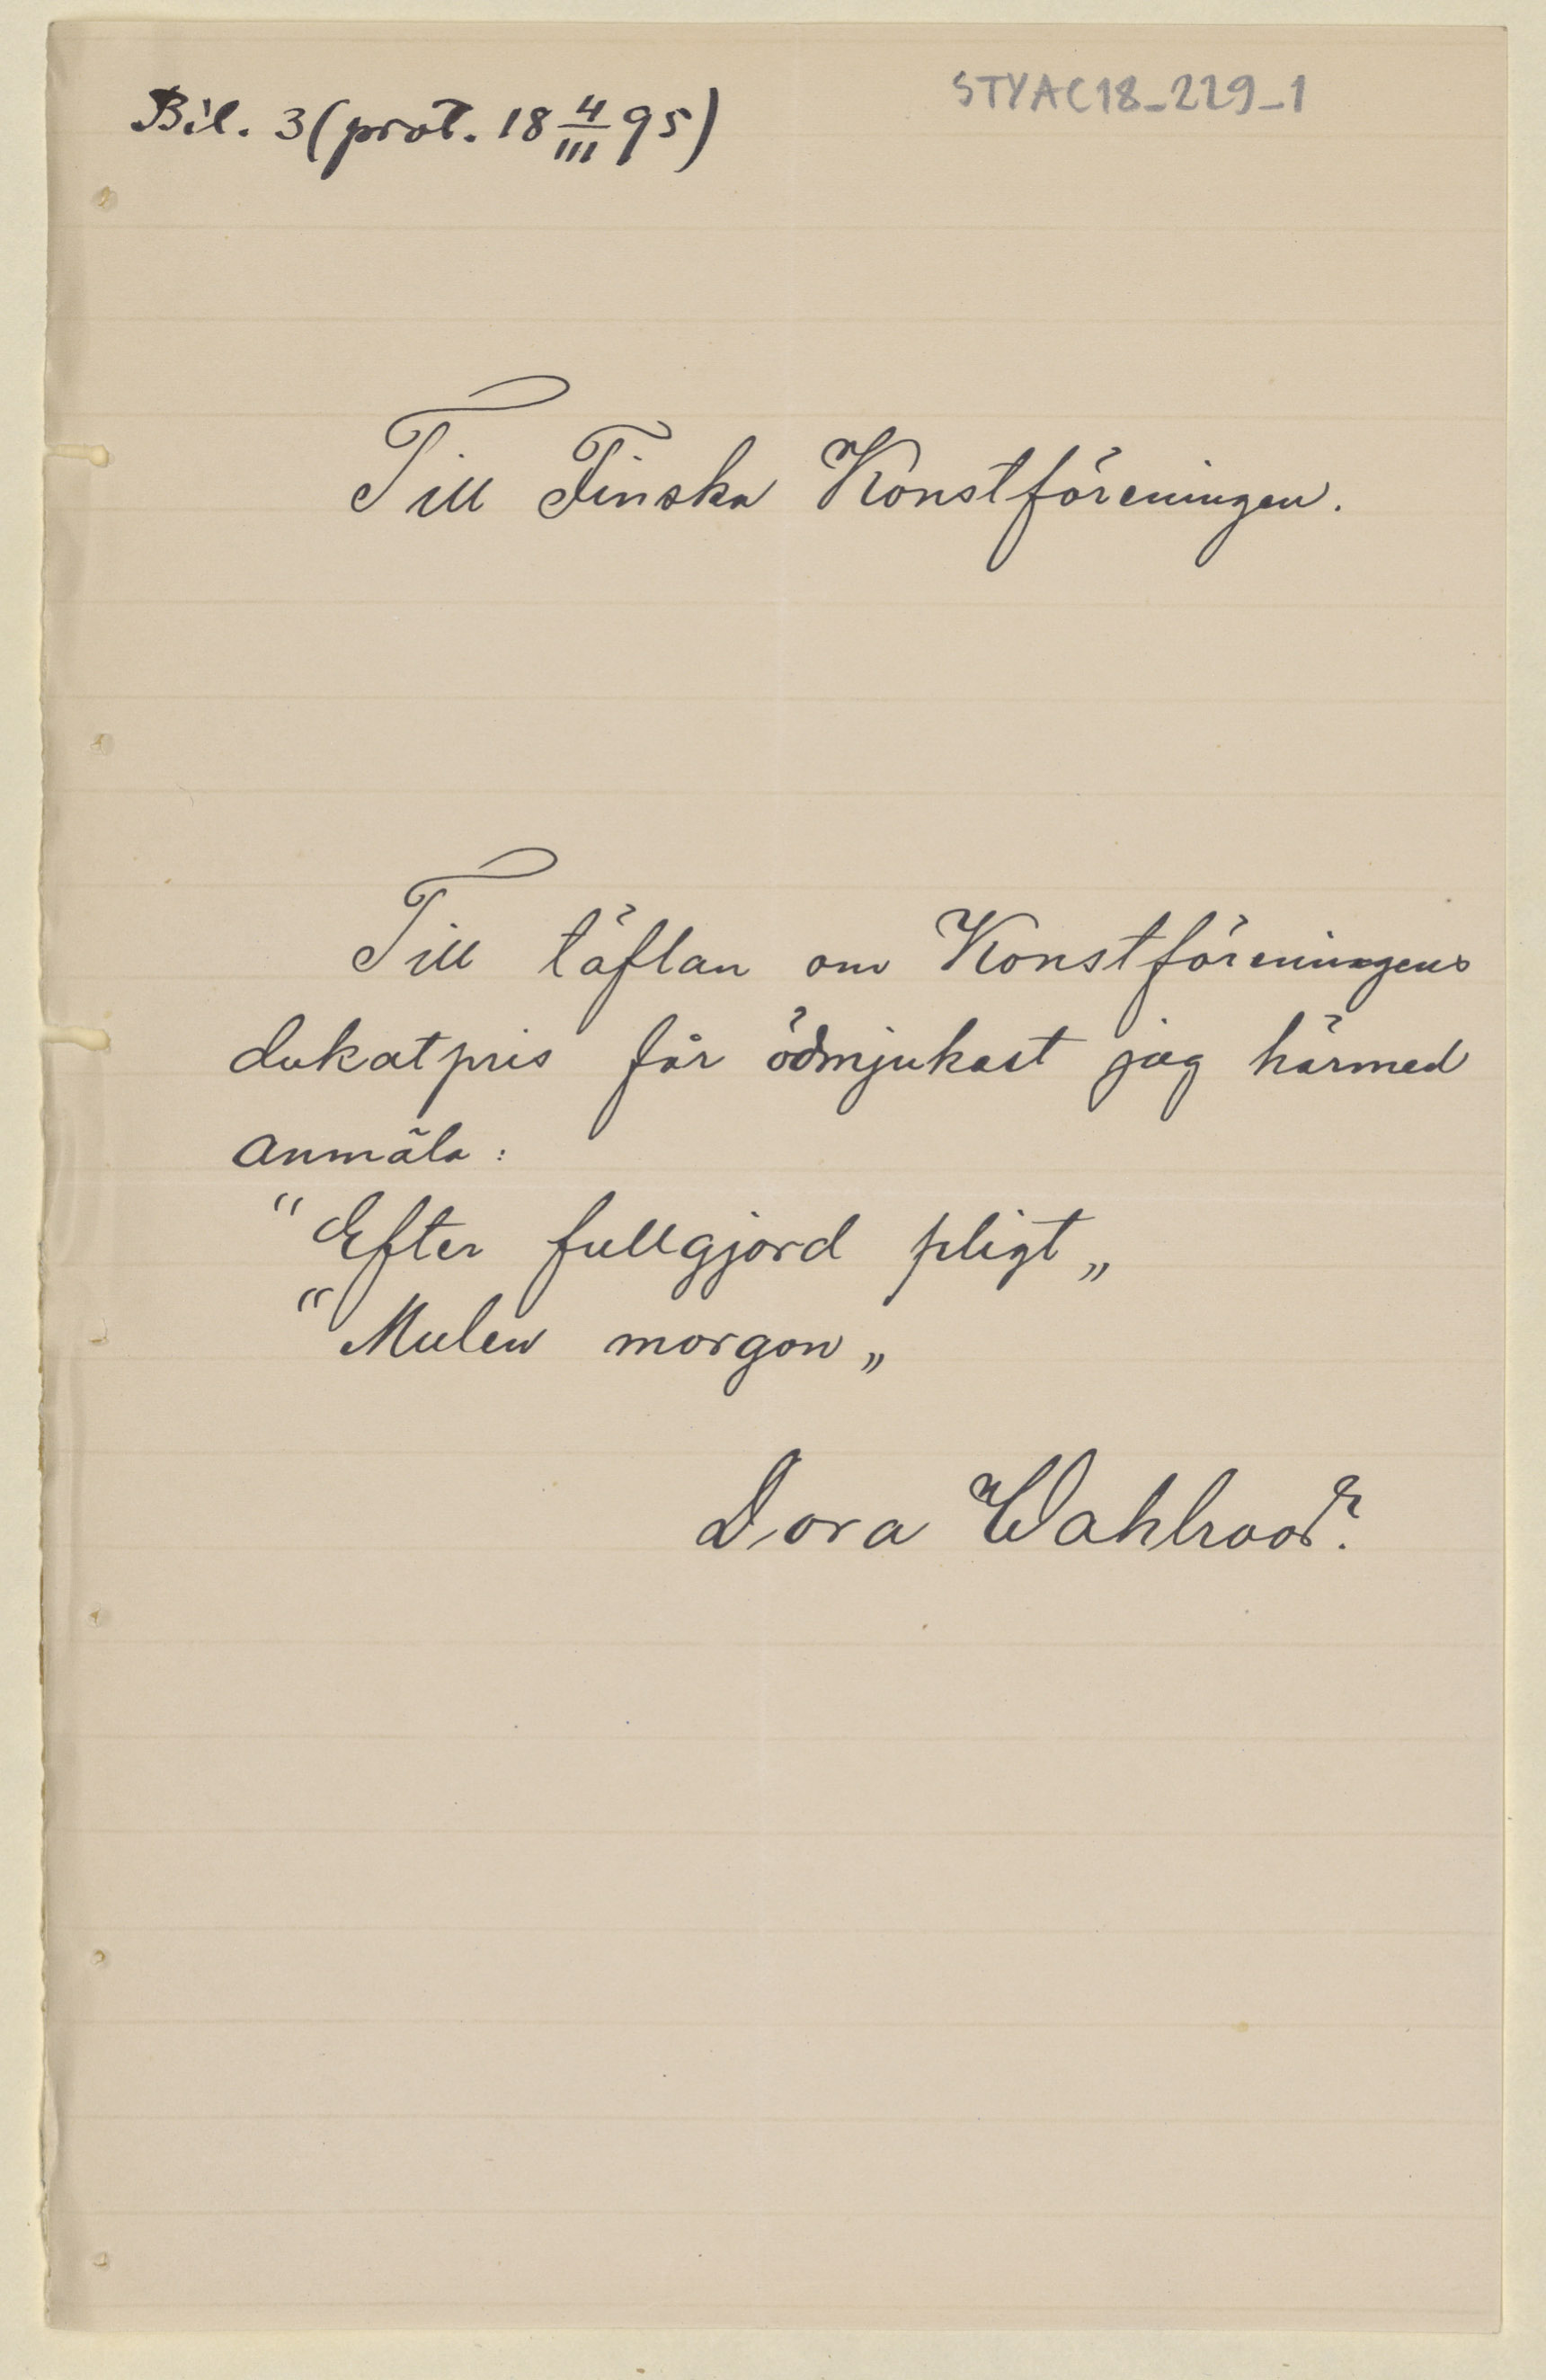 Bil. 3 (prot. 18 4/III 95)
STYAC18_229_1
Till Finska Konstföreningen.
Till täflan om Konstföreningens
dukatpris får ödmjukast jag härmed
anmäla:
"Efter fullgjord pligt„
"Mulen morgon„
Dora Wahlroos.